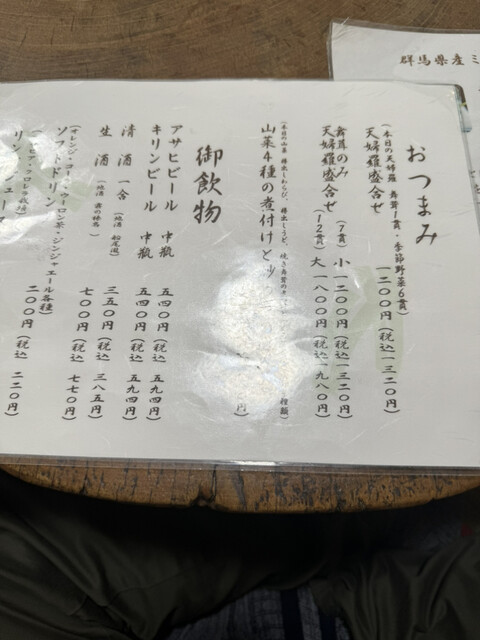 群馬県産
おつまみ
(本日の天婦羅 舞茸1貫・季節野菜6貫)
天婦羅盛合せ 一二〇〇円(税込一三二〇円)
舞茸のみ (7貫) 小 一二〇〇円(税込一三二〇円)
天婦羅盛合せ (12貫) 大 一八〇〇円(税込一九八〇円)
山菜4種の煮付けと
円)
御飲物
アサヒビール 中瓶 五四〇円(税込 五九四円)
キリンビール 中瓶 五四〇円(税込 五九四円)
清酒 一合 (地酒 船尾瀧) 三五〇円(税込 三八五円)
生酒 七〇〇円(税込 七七〇円)
(オレンジ・コーラ・ウーロン茶・ジンジャエール各種)
ソフトドリンク 二〇〇円(税込 二二〇円)